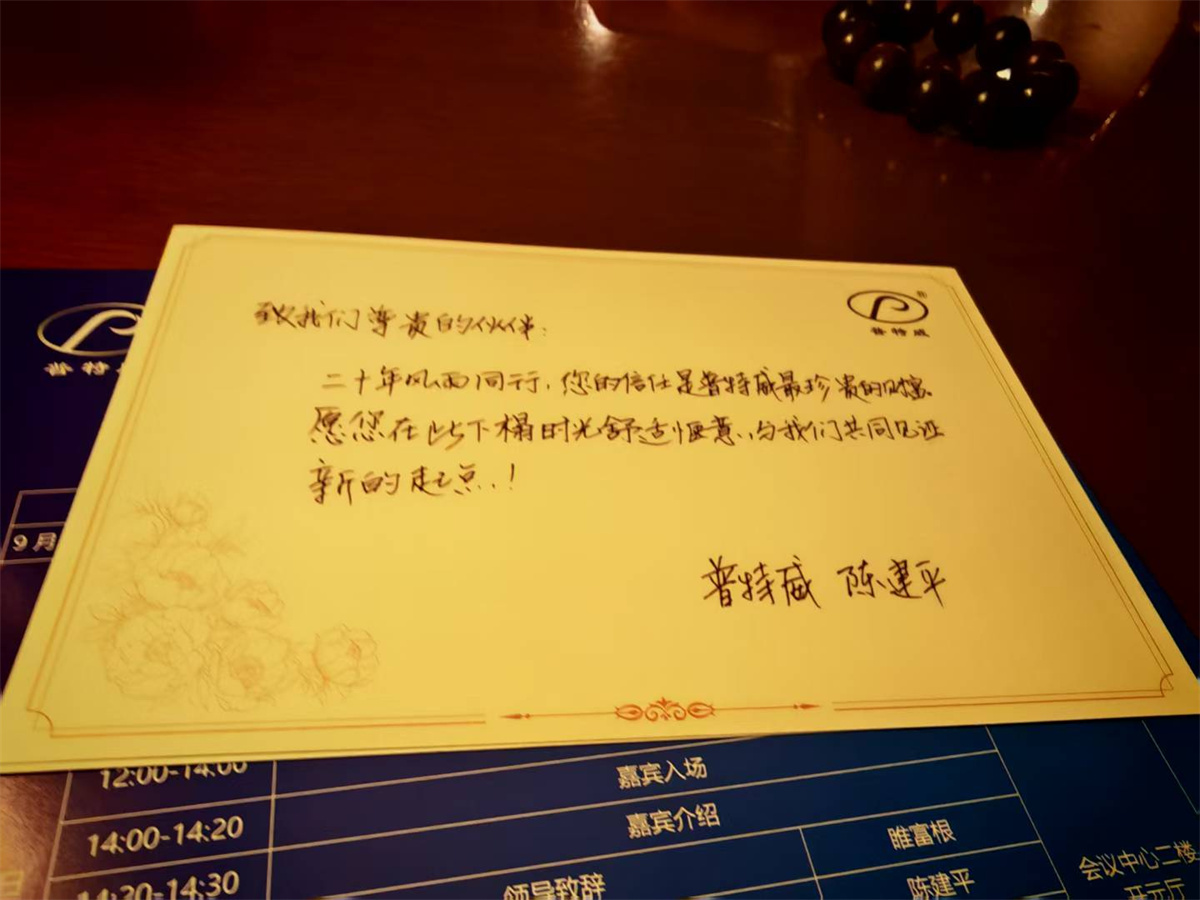 普特威
致我们尊贵的伙伴:
二十年风雨同行,您的信任是普特威最珍贵的财富。
愿您在此下榻时光舒适惬意、与我们共同见证
新的起点!
普特威 陈建平
普特
9月
12:00-14:00 嘉宾入场
14:00-14:20 嘉宾介绍 睢富根
14:20-14:30 领导致辞 陈建平
会议中心二楼
开元厅
日